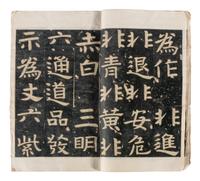 為作 非進
非退非安危
非青非黃非
赤白 三明
六通道品發
示為丈六紫